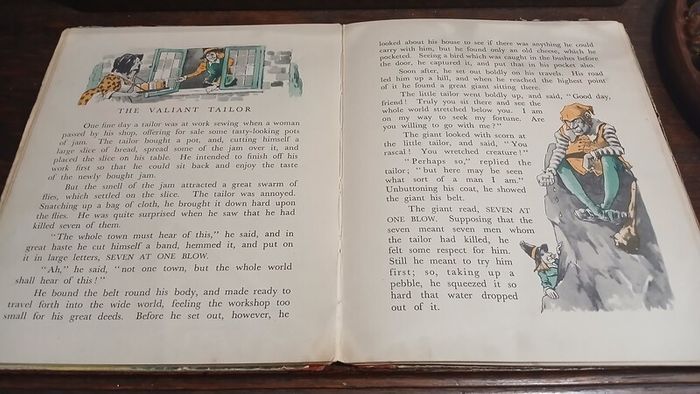 THE VALIANT TAILOR
One fine day a tailor was at work sewing when a woman
passed by his shop, offering for sale some tasty-looking pots
of jam. The tailor bought a pot, and, cutting himself a
large slice of bread, spread some of the jam over it, and
placed the slice on his table. He intended to finish off his
work first so that he could sit back and enjoy the taste
of the newly bought jam.
But the smell of the jam attracted a great swarm of
flies, which settled on the slice. The tailor was annoyed.
Snatching up a bag of cloth, he brought it down hard upon
the flies. He was quite surprised when he saw that he had
killed seven of them.
"The whole town must hear of this," he said, and in
great haste he cut himself a band, hemmed it, and put on
it in large letters, SEVEN AT ONE BLOW.
"Ah," he said, "not one town, but the whole world
shall hear of this!"
He bound the belt round his body, and made ready to
travel forth into the wide world, feeling the workshop too
small for his great deeds. Before he set out, however, he
looked about his house to see if there was anything he could
carry with him, but he found only an old cheese, which he
pocketed. Seeing a bird which was caught in the bushes before
the door, he captured it, and put that in his pocket also.
Soon after, he set out boldly on his travels. His road
led him up a hill, and when he reached the highest point
of it he found a great giant sitting there.
The little tailor went boldly up, and said, "Good day,
friend! Truly you sit there and see the
whole world stretched below you. I am
on my way to seek my fortune. Are
you willing to go with me?"
The giant looked with scorn at
the little tailor, and said, "You
rascal! You wretched creature!"
"Perhaps so," replied the
tailor; "but here may be seen
what sort of a man I am."
Unbuttoning his coat, he showed
the giant his belt.
The giant read, SEVEN AT
ONE BLOW. Supposing that the
seven meant seven men whom
the tailor had killed, he
felt some respect for him.
Still he meant to try him
first; so, taking up a
pebble, he squeezed it so
hard that water dropped
out of it.